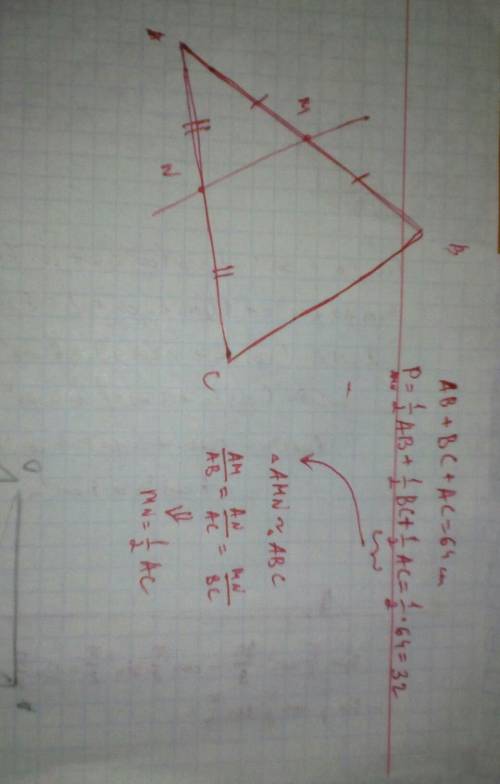 A
M
B
N
C
AB + BC + AC = 64 cm
P = 1/2 AB + 1/2 BC + 1/2 AC = 1/2 · 64 = 32
△AMN ~ △ABC
AM/AB = AN/AC = MN/BC
⇓
MN = 1/2 AC